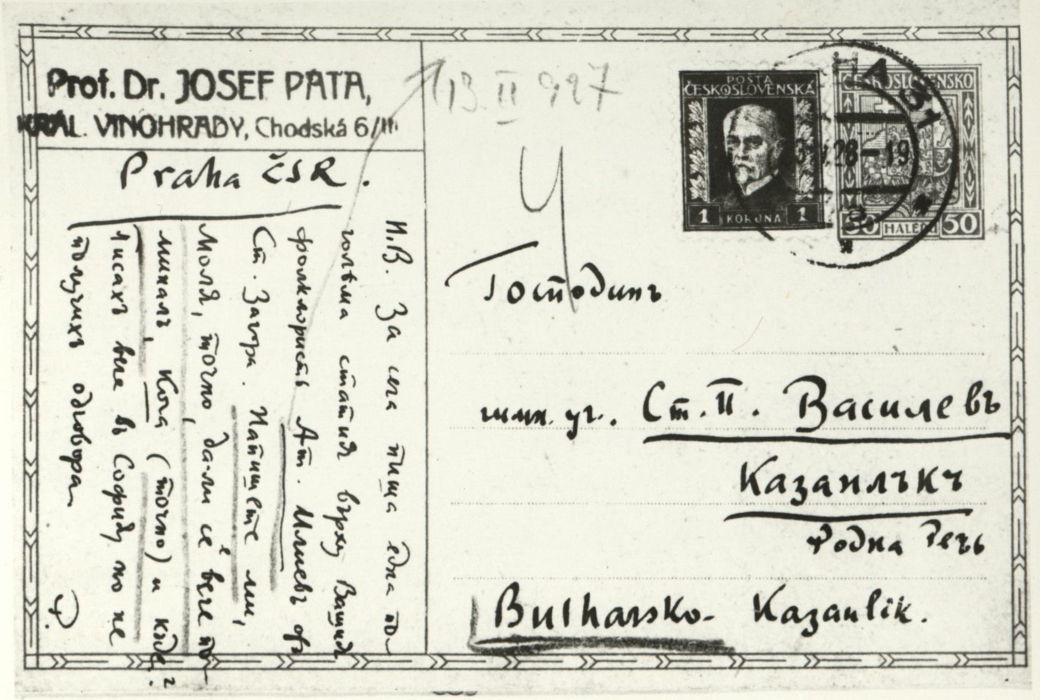 Prof. Dr. JOSEF PÁTA,
KRÁL. VINOHRADY, Chodská 6/III
Praha ČSR.
Н.В. За сега пиша една по-
голѣма статия върху Вашия
фолклористъ Ат. Илиевъ отъ
Ст. Загора. Напишете ми,
моля, точно дали се вече по-
миналъ, Кога (точно) и кѫде?
Писахъ вече въ София но не
получихъ одговора.
P.
13 II 927
POŠTA
ČESKOSLOVENSKÁ
1 KORUNA 1
ČESKOSLOVENSKO
50 HALÉŘŮ 50
28-19
Господинъ
гимн. уч. Ст. П. Василевъ
Казанлъкъ
Родна Речь
Bulharsko - Kazanlik.